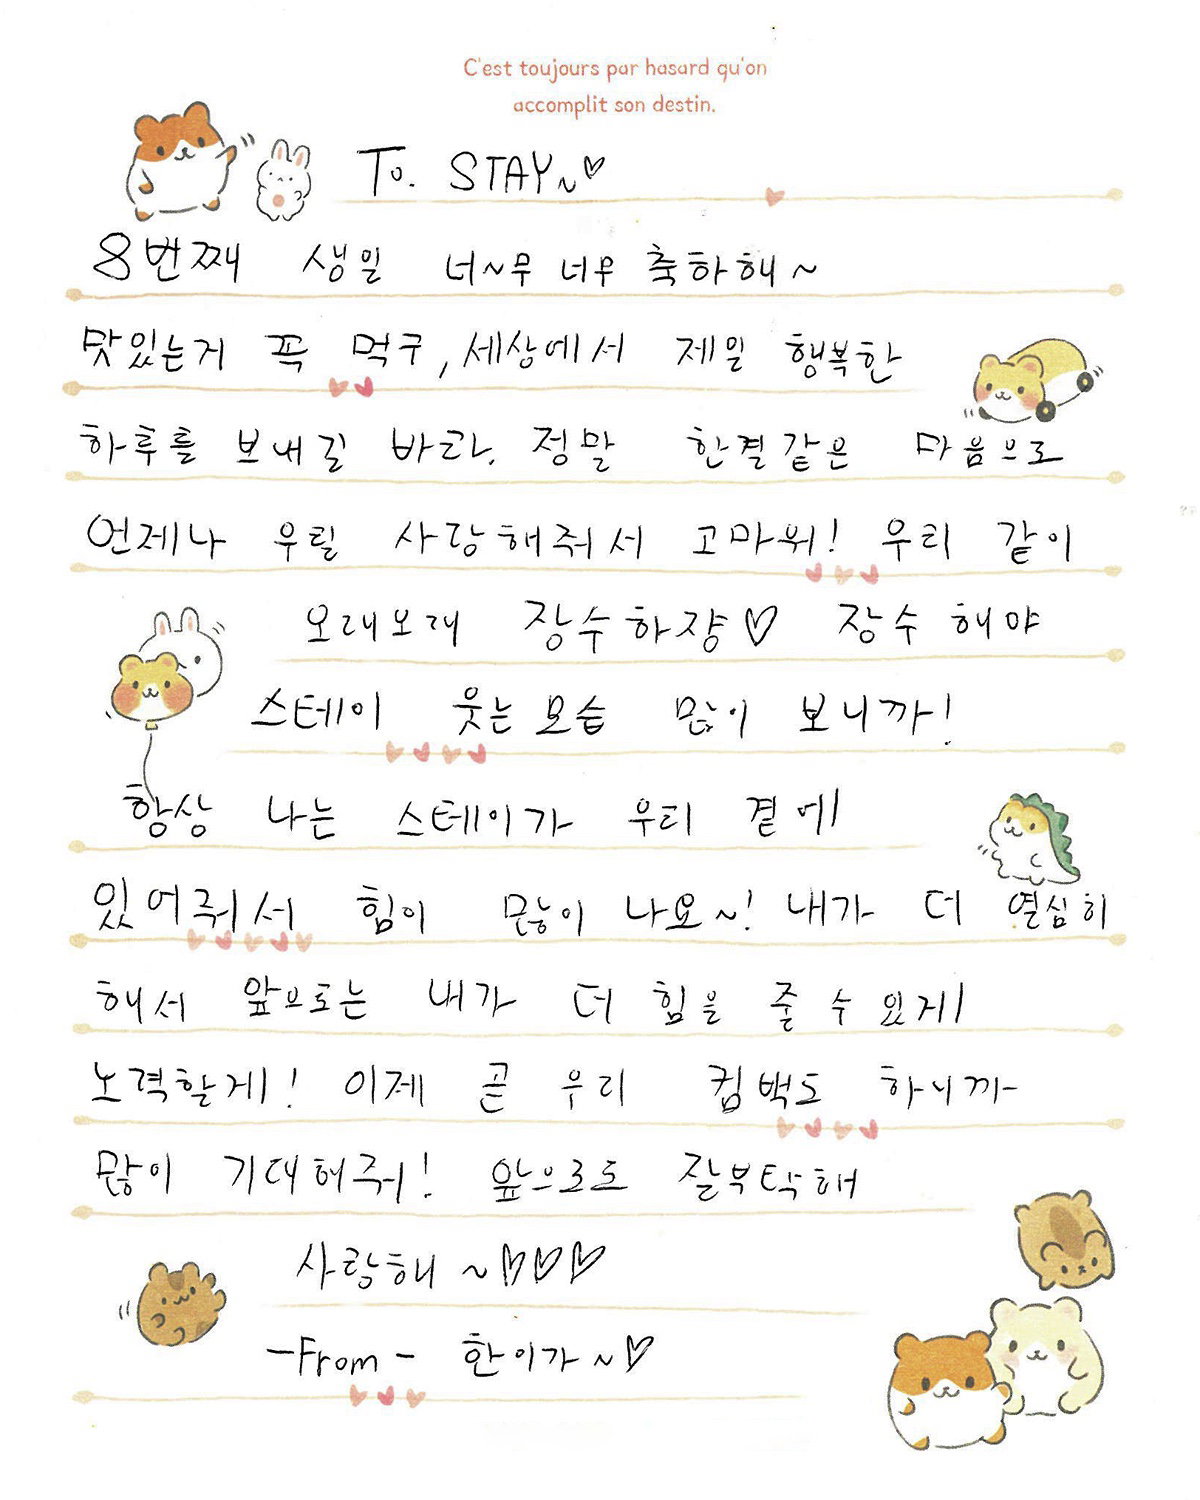 C'est toujours par hasard qu'on
accomplit son destin.
To. STAY~♡
8번째 생일 너~무 너무 축하해~
맛있는거 꼭 먹구, 세상에서 제일 행복한
하루를 보내길 바라. 정말 한결같은 마음으로
언제나 우릴 사랑해줘서 고마워! 우리 같이
오래오래 장수하쟝♡ 장수 해야
스테이 웃는 모습 많이 보니까!
항상 나는 스테이가 우리 곁에
있어줘서 힘이 많이 나요~! 내가 더 열심히
해서 앞으로는 내가 더 힘을 줄 수 있게
노력할게! 이제 곧 우리 컴백도 하니까
많이 기대해줘! 앞으로도 잘부탁해
사랑해~♡♡♡
-From- 한이가~♡